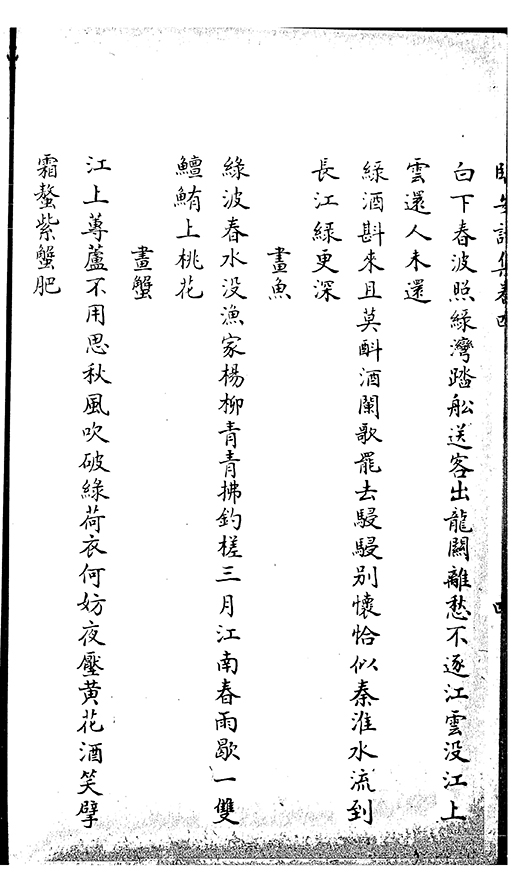 白下春波照綠灣踏船送客出龍關離愁不逐江雲没江上
雲還人未還
綠酒斟來且莫酙酒闌歌罷去駸駸别懷恰似秦淮水流到
長江綠更深
畫魚
綠波春水没漁家楊柳青青拂釣槎三月江南春雨歇一雙
鱣鮪上桃花
畫蟹
江上蓴蘆不用思秋風吹破綠荷衣何妨夜壓黄花酒笑擘
霜螯紫蟹肥